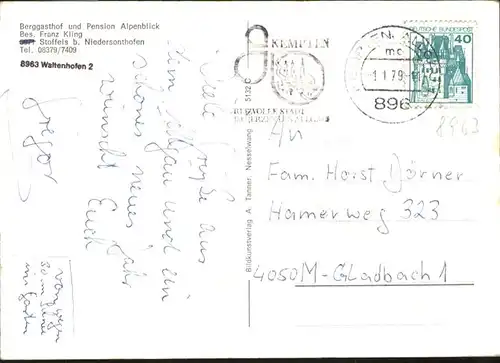 Berggasthof und Pension Alpenblick
Bes. Franz Kling
Stoffels b. Niedersonthofen
Tel. 08379/7409
8963 Waltenhofen 2
Viele Grüße aus
dem Allgäu und ein
schönes neues Jahr
wünscht Euch
Gregor
30 cm
im Garten
KEMPTEN
5132 C
Bildkunstverlag A. Tanner, Nesselwang
1.1.79
896
DEUTSCHE BUNDESPOST
40
8963
An
Fam. Horst Dörner
Hamerweg 323
4050 M-Gladbach 1